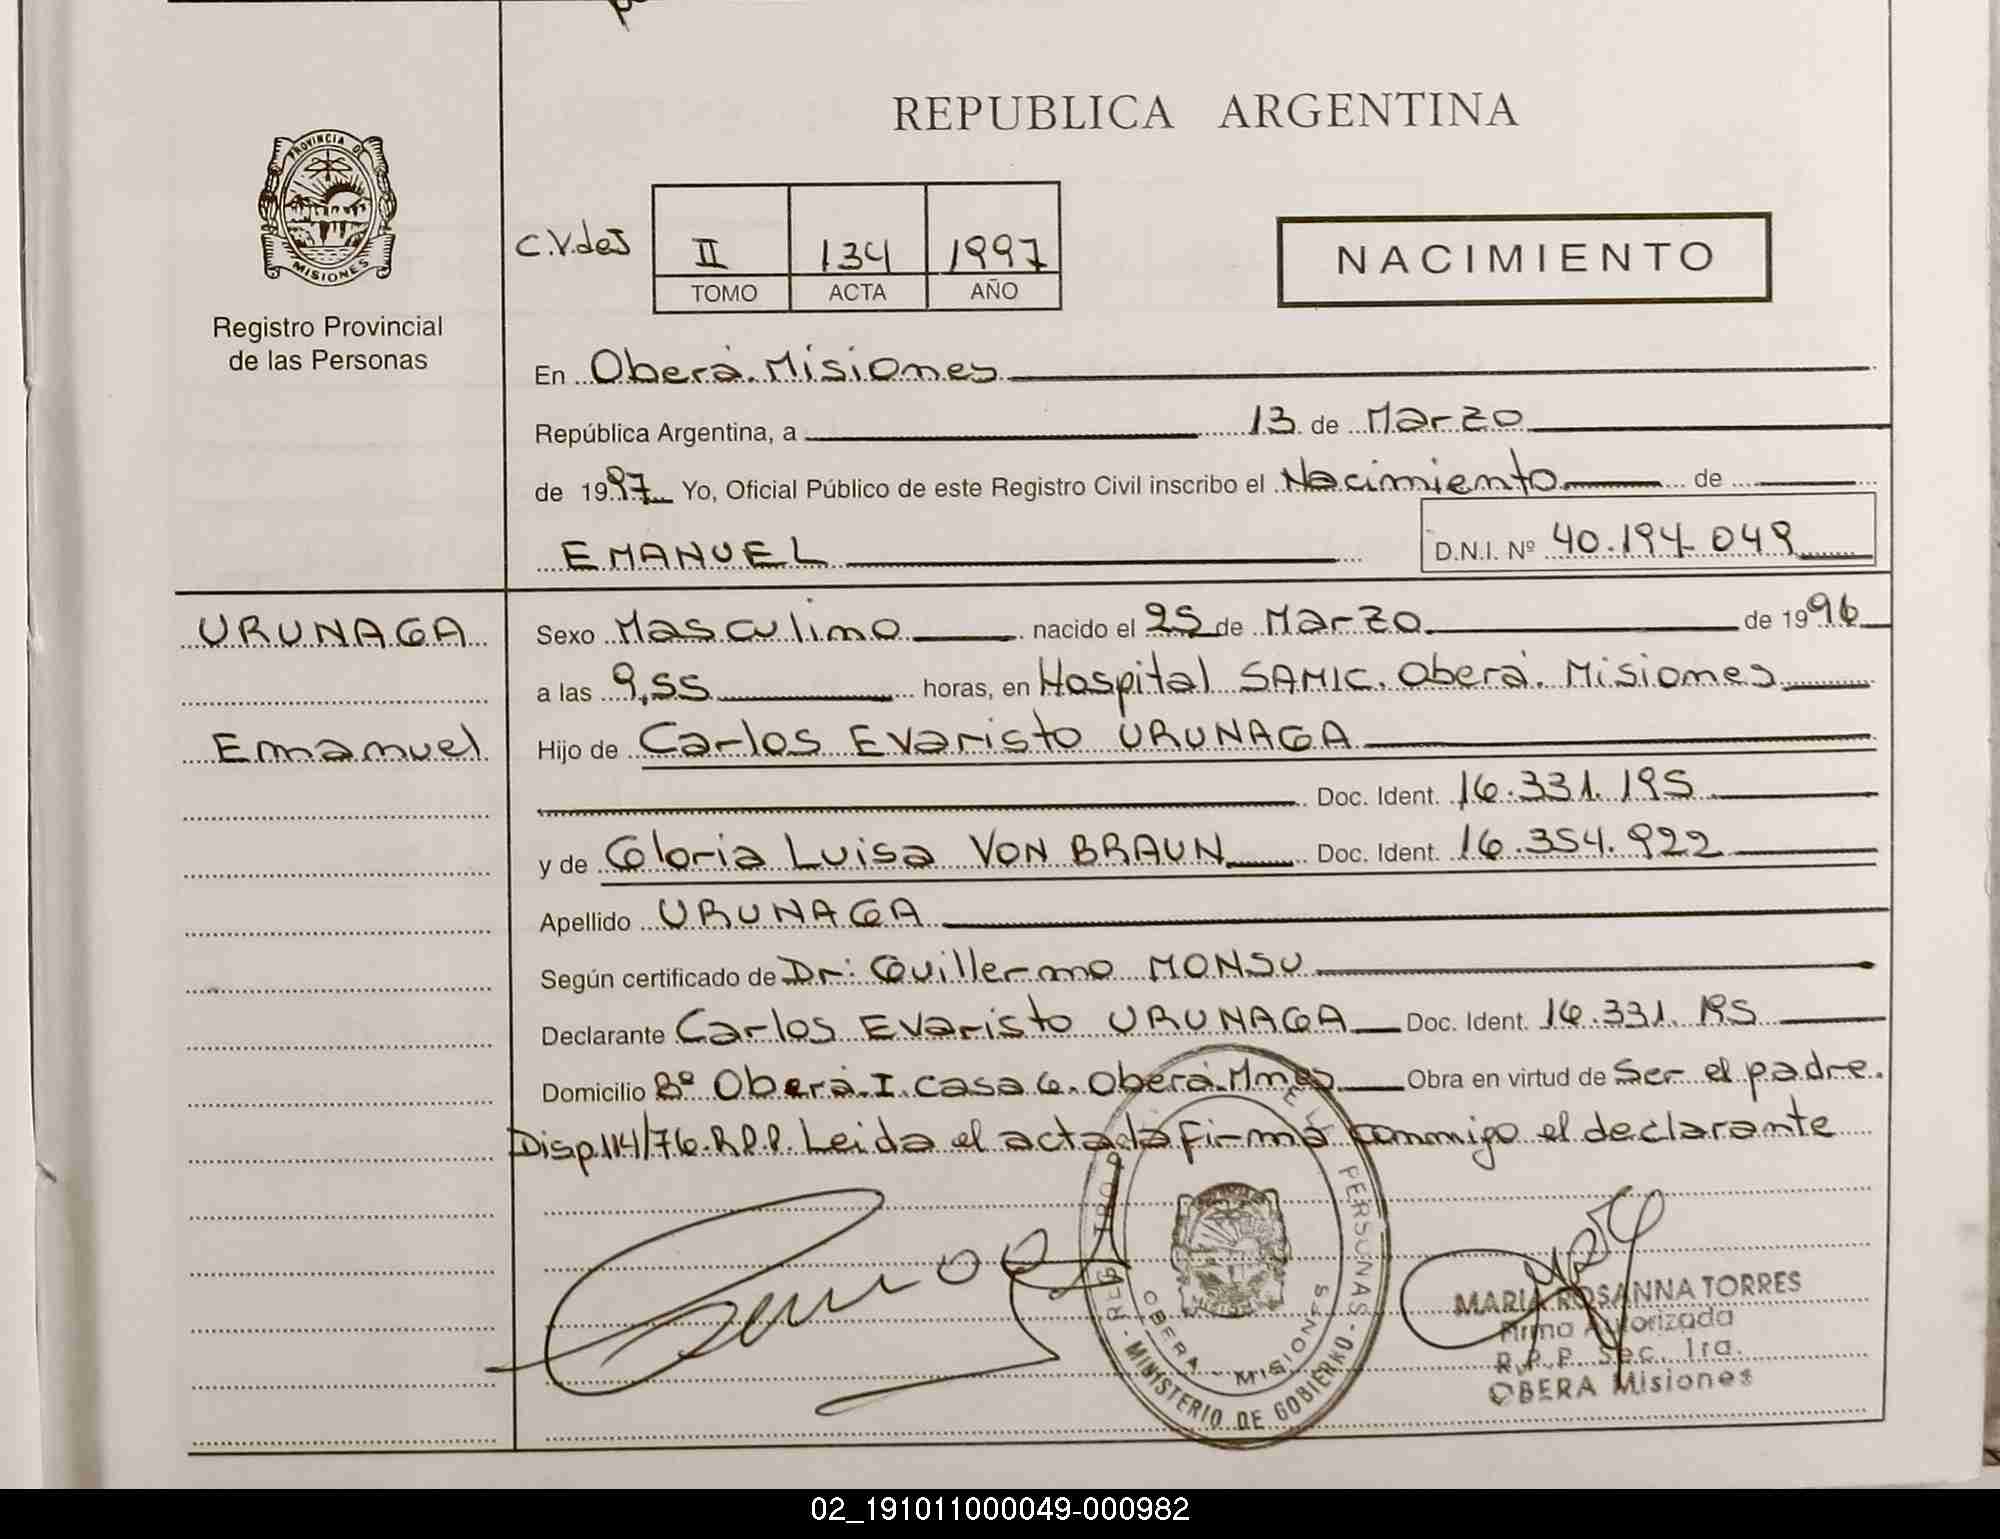 REPUBLICA ARGENTINA
PROVINCIA DE
MISIONES
Registro Provincial
de las Personas
C.V.des
II 134 1997
TOMO ACTA AÑO
NACIMIENTO
En Oberá. Misiones
República Argentina, a 13 de Marzo
de 1997 Yo, Oficial Público de este Registro Civil inscribo el Nacimiento de
EMANUEL D.N.I. Nº 40.194.049
URUNAGA
Emanuel
Sexo Masculino nacido el 25 de Marzo de 1996
a las 9,55 horas, en Hospital SAMIC. Oberá. Misiones
Hijo de Carlos Evaristo URUNAGA
Doc. Ident. 16.331.195
y de Gloria Luisa VON BRAUN Doc. Ident. 16.354.922
Apellido URUNAGA
Según certificado de Dr: Guillermo MONSU
Declarante Carlos Evaristo URUNAGA Doc. Ident. 16.331.195
Domicilio Bº Oberá I. Casa 6. Oberá. Mnes Obra en virtud de Ser el padre.
Disp 114/76. R.P.P. Leida el acta da firma conmigo el declarante
REGISTRO DE L PERSONAS
OBERA - MISIONES
- MINISTERIO DE GOBIERNO -
MARIA ROSANNA TORRES
Firma Autorizada
R.P.P. Sec. 1ra.
OBERA Misiones
02_191011000049-000982